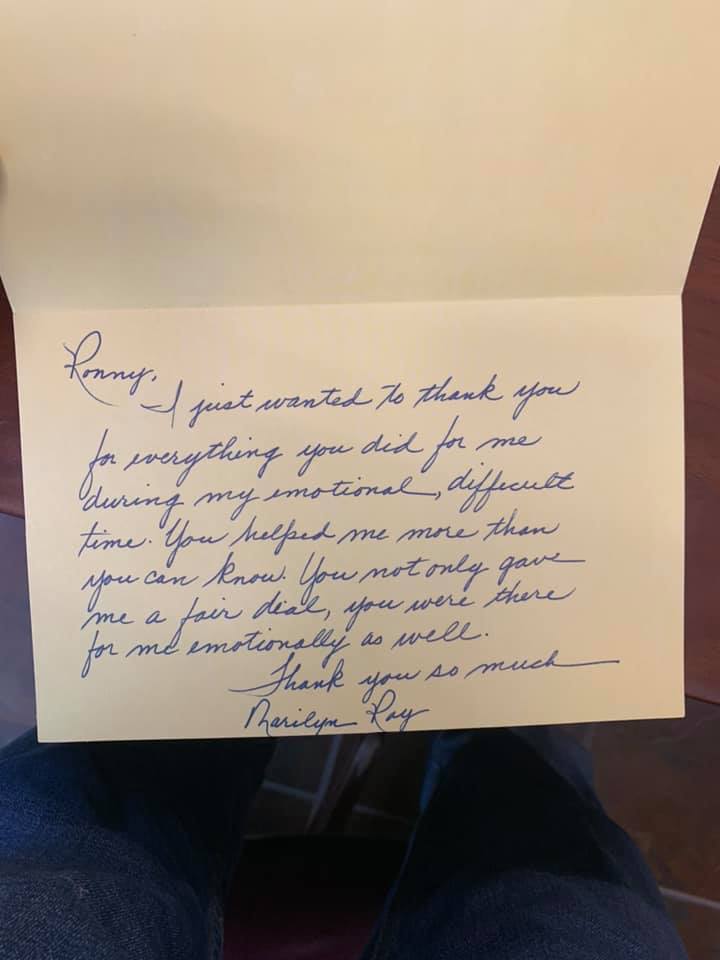 Ronny,
I just wanted to thank you
for everything you did for me
during my emotional, difficult
time. You helped me more than
you can know. You not only gave
me a fair deal, you were there
for me emotionally as well.
Thank you so much
Marilyn Ray